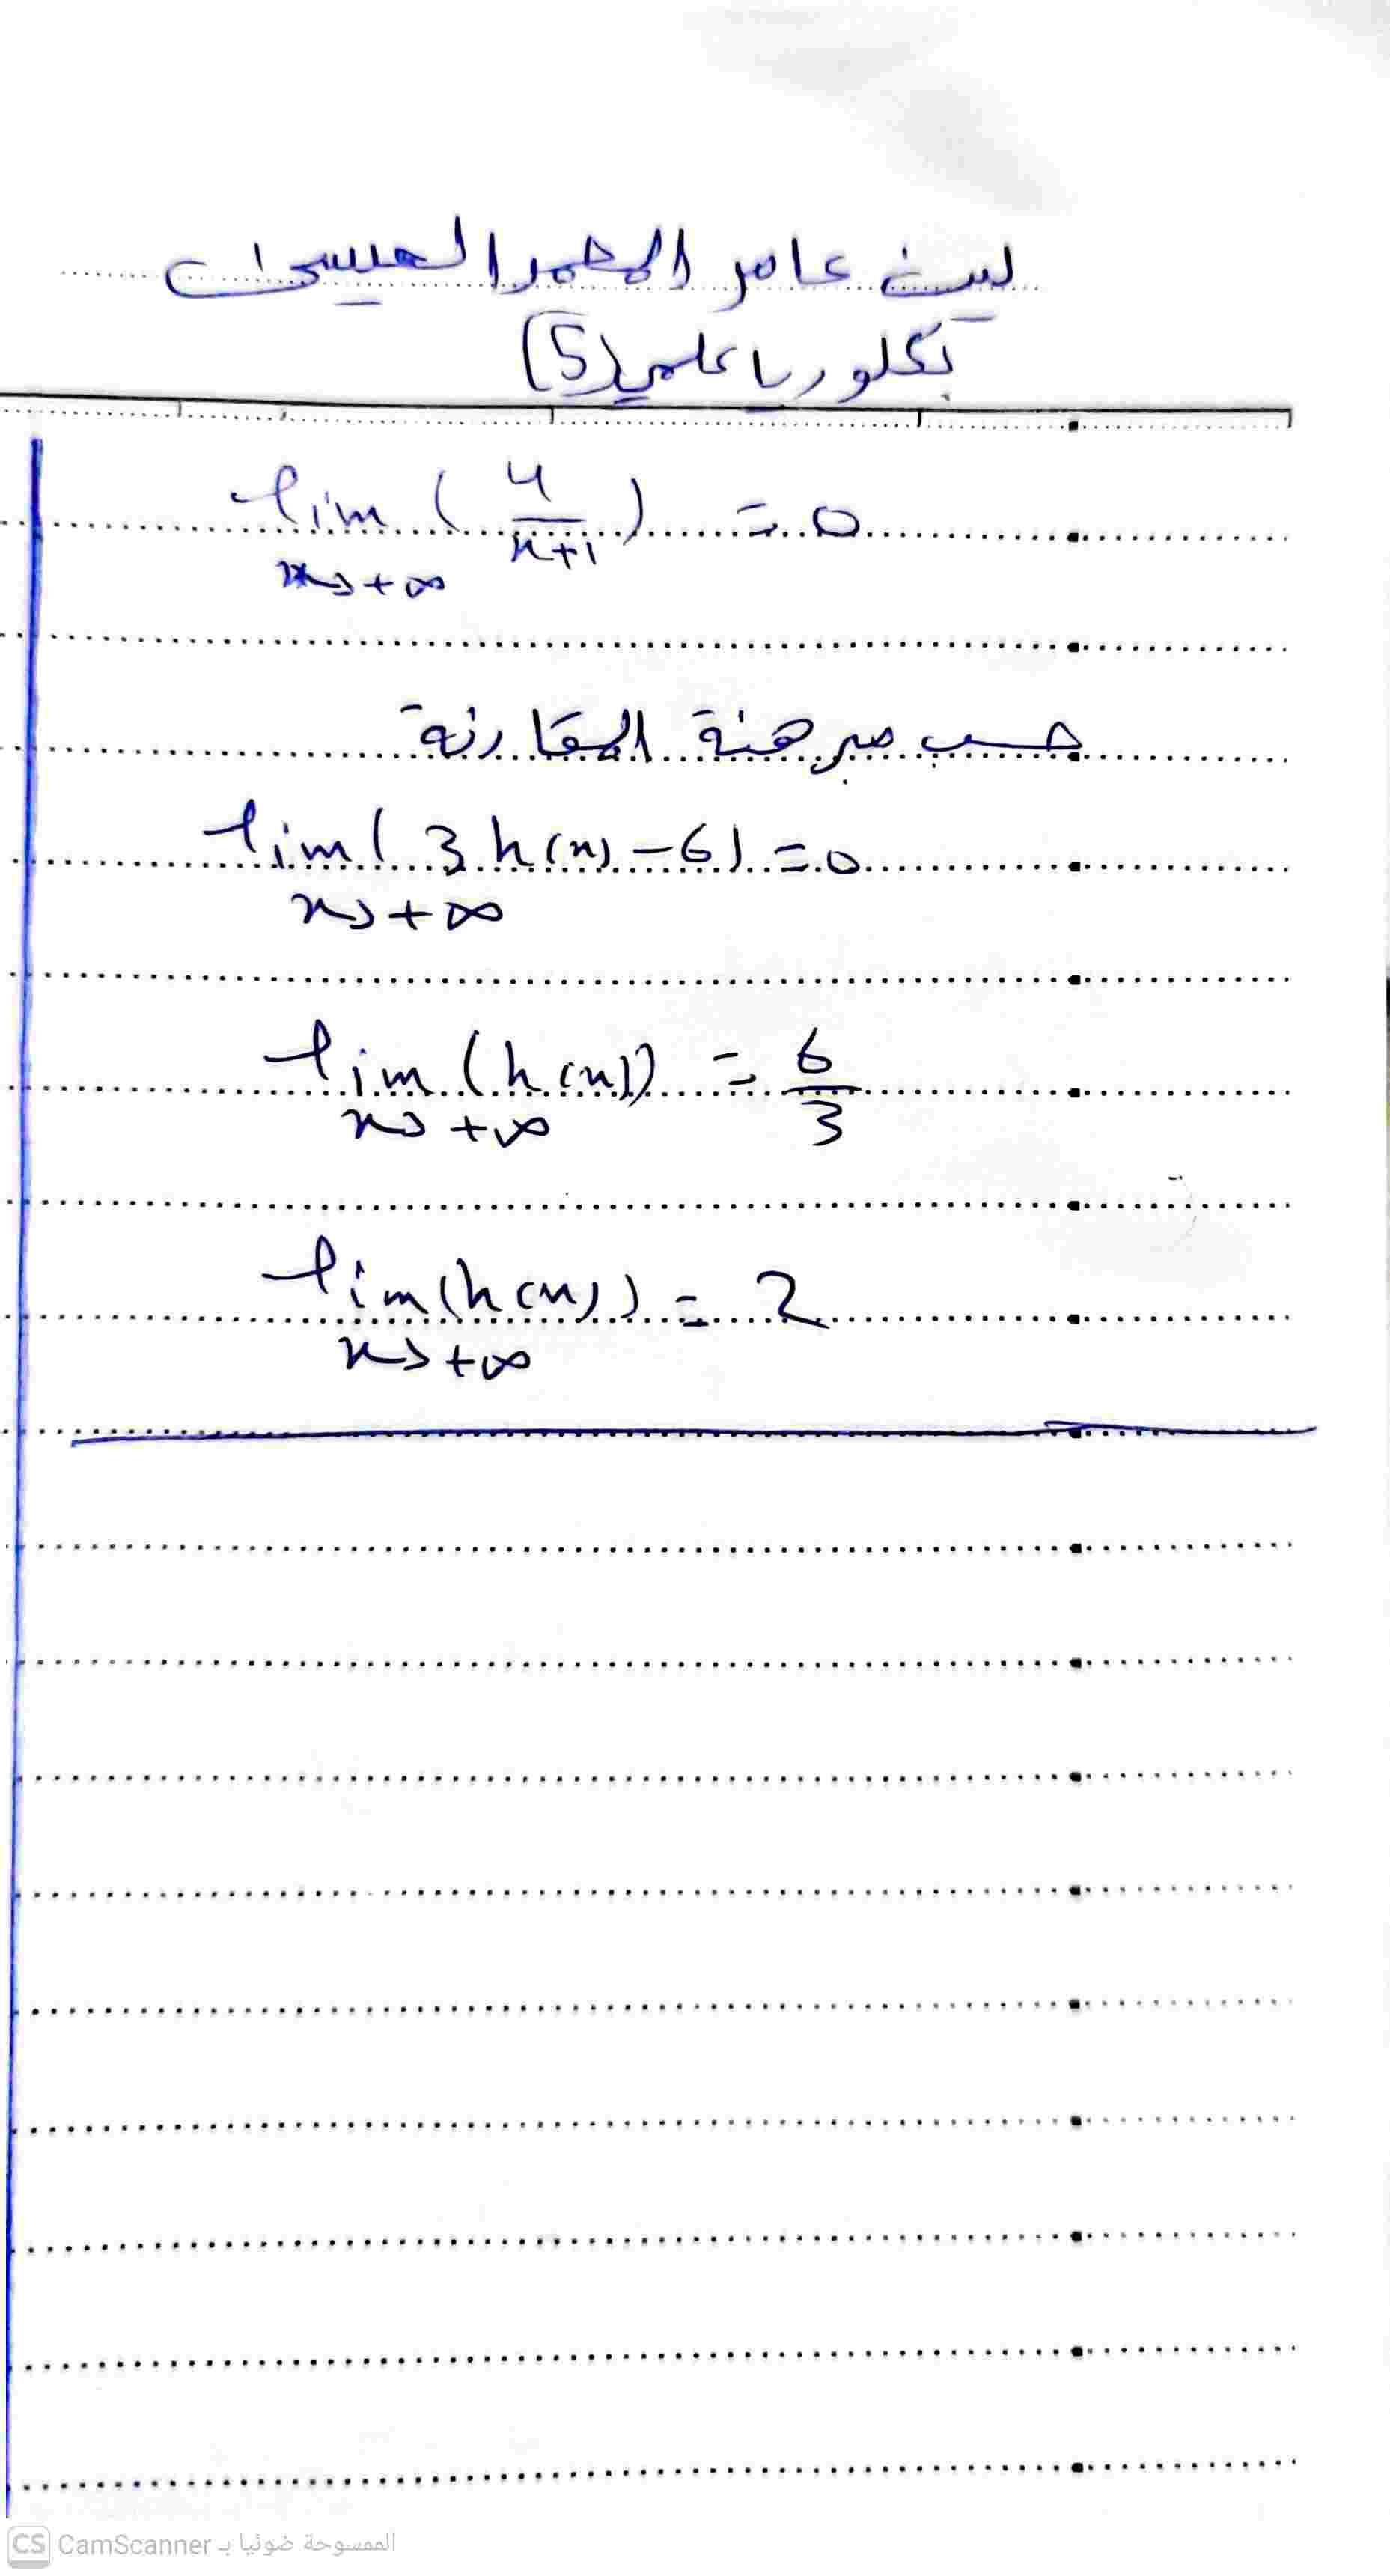 ليث عامر المحمد العيسى
بكلوريا علمي (5)
lim ( 4/x+1 ) = 0
x→+∞
حسب مبرهنة المقارنة
lim ( 3 h(x) - 6 ) = 0
x→+∞
lim (h(x)) = 6/3
x→+∞
lim (h(x)) = 2
x→+∞
CS CamScanner الممسوحة ضوئيا بـ